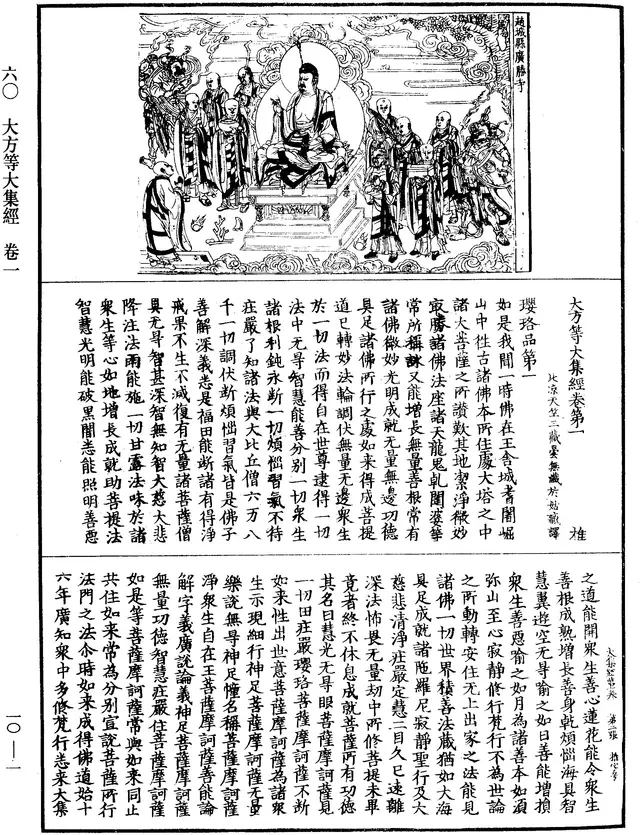 六〇　大方等大集經　卷一
趙城縣廣勝寺
大方等大集經卷第一
北涼天竺三藏曇無讖於姑臧譯
瓔珞品第一
如是我聞一時佛在王舍城耆闍崛
山中往古諸佛本所住處大塔之中
諸大菩薩之所讚歎其地潔淨微妙
寂勝諸佛法座諸天龍鬼乹闥婆等
常所稱詠又能增長無量善根常有
諸佛微妙光明成就无量無邊功德
具足諸佛所行之處如來得成菩提
道已轉妙法輪調伏無量无邊衆生
於一切法而得自在世尊逮得一切
法中无㝵智慧能善分别一切衆生
諸根利鈍永斷一切煩惱習氣不待
莊嚴了知諸法與大比丘僧六万八
千一切調伏斷煩惱習氣皆是佛子
善解深義悉是福田能斷諸有得淨
戒果不生不滅復有无量諸菩薩僧
具无㝵智甚深智無知智大慈大悲
降注法雨能施一切甘露法味於諸
衆生等心如地增長成就助菩提法
智慧光明能破黒闇悉能照明善惡
之道能開衆生善心蓮花能令衆生
善根成熟增長善身能乹煩惱海具智
慧翼遊空无㝵喻之如日善能增損
衆生善惡喻之如月為諸善本如須
弥山至心寂靜修行梵行不為世論
之所動轉安住无上出家之法能見
諸佛一切世界積善法藏猶如大海
具足成就諸陁羅尼寂靜聖行及大
慈悲清淨莊嚴定慧二目久已遠離
深法怖畏无量劫中所修菩提未畢
竟者終不休息成就菩薩所有功德
其名曰慧光无㝵眼菩薩摩訶薩見
一切田莊嚴瓔珞菩薩摩訶薩不斷
如來性出世意菩薩摩訶薩為諸衆
生示現細行神足菩薩摩訶薩无量
樂說無㝵神足幢名稱菩薩摩訶薩
淨衆生自在王菩薩摩訶薩善能論
解字義廣說論義神足菩薩摩訶薩
無量功德智慧莊嚴住菩薩摩訶薩
如是等菩薩摩訶薩常與如來同止
共住如來常為分别宣說菩薩所行
法門之法尒時如來成得佛道始十
六年廣知衆中多修梵行悉来大集
一〇—一